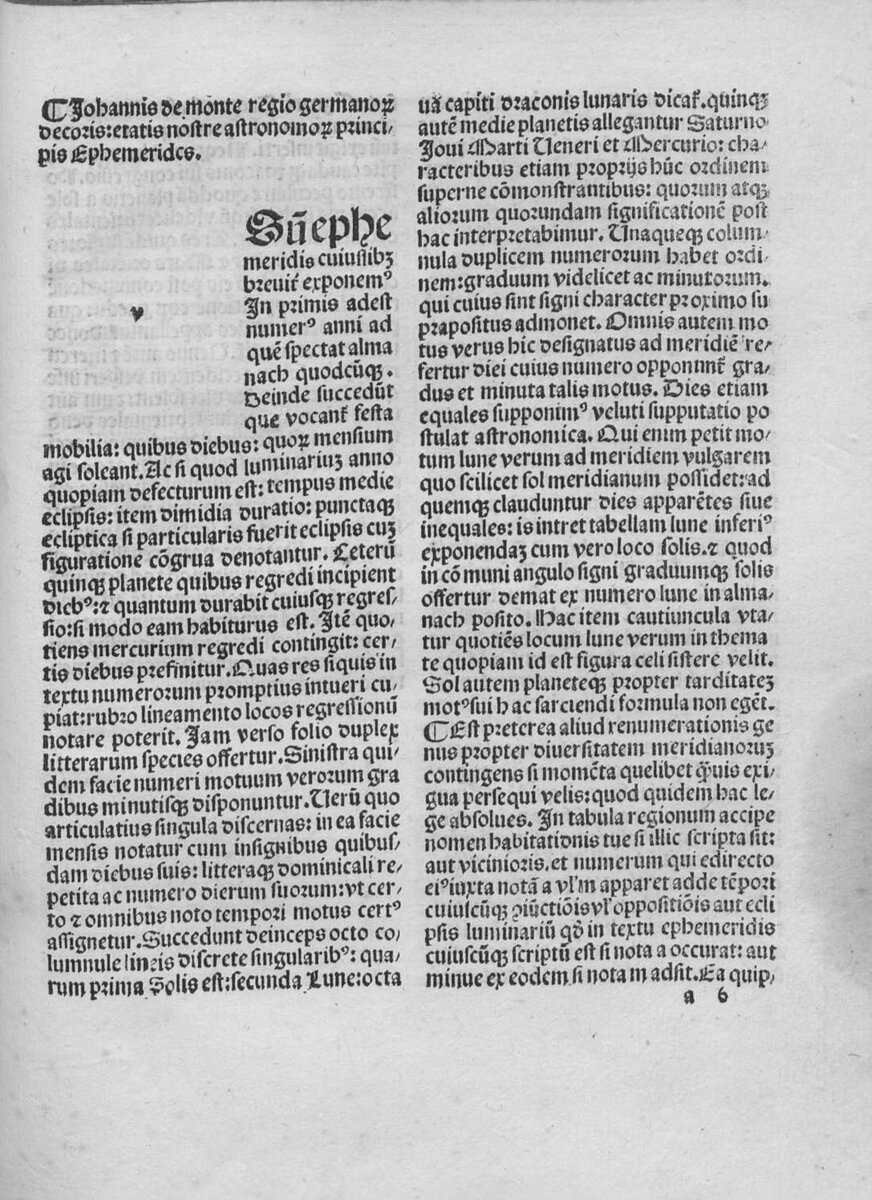 ⁋Johannis de monte regio germanoꝝ
decoris: etatis nostre astronomoꝝ princi⸗
pis Ephemerides.
Sũ ephe
meridis cuiuslibꝫ
breuit̃ exponemꝰ
In primis adest
numerꝰ anni ad
quẽ spectat alma
nach quodcũqꝫ.
Deinde succedũt
que vocant̃ festa
v
mobilia: quibus diebus: quoꝝ mensium
agi soleant. Ac si quod luminariuꝫ anno
quopiam defecturum est: tempus medie
eclipsis: item dimidia duratio: punctaqꝫ
ecliptica si particularis fuerit eclipsis cuꝫ
figuratione cõgrua denotantur. Ceterũ
quinqꝫ planete quibus regredi incipient
dicbꝰ: ⁊ quantum durabit cuiusqꝫ regres⸗
sio: si modo eam habiturus est. Itẽ quo⸗
tiens mercurium regredi contingit: cer⸗
tis diebus prefinitur. Quas res siquis in
textu numerorum promptius intueri cu⸗
piat: rubro lineamento locos regressionũ
notare poterit. Jam verso folio duplex
litterarum species offertur. Sinistra qui⸗
dem facie numeri motuum verorum gra
dibus minutisqꝫ disponuntur. Uerũ quo
articulatius singula discernas: in ea facie
mensis notatur cum insignibus quibus⸗
dam diebus suis: litteraqꝫ dominicali re⸗
petita ac numero dierum suorum: vt cer⸗
to ⁊ omnibus noto tempori motus certꝰ
assignetur. Succedunt deinceps octo co⸗
lumnule lineis discrete singularibꝰ: qua⸗
rum prima Solis est: secunda Lune: octa
uã capiti draconis lunaris dicat̃. quinqꝫ
autẽ medie planetis allegantur Saturno
Joui Marti Ueneri et Mercurio: cha⸗
racteribus etiam proprijs hũc ordinem
superne cõmonstrantibus: quorum atqꝫ
aliorum quorundam significationẽ post
hac interpretabimur. Unaqueqꝫ colum⸗
nula duplicem numerorum habet ordi⸗
nem: graduum videlicet ac minutorum.
qui cuius sint signi character proximo su
prapositus admonet. Omnis autem mo
tus verus hic designatus ad meridiẽ re⸗
fertur diei cuius numero opponunt̃ gra⸗
dus et minuta talis motus. Dies etiam
equales supponimꝰ veluti supputatio po
stulat astronomica. Qui enim petit mo⸗
tum lune verum ad meridiem vulgarem
quo scilicet sol meridianum possidet: ad
quemqꝫ clauduntur dies apparẽtes siue
inequales: is intret tabellam lune inferiꝰ
exponendaꝫ cum vero loco solis. ⁊ quod
in cõmuni angulo signi graduumqꝫ solis
offertur demat ex numero lune in alma⸗
nach posito. Hac item cautiuncula vta⸗
tur quotiẽs locum lune verum in thema
te quopiam id est figura celi sistere velit.
Sol autem planeteqꝫ propter tarditateꝫ
motꝰ sui hac sarciendi formula non egẽt.
⁋Est preterea aliud renumerationis ge
nus propter diuersitatem meridianoruꝫ
contingens si momẽta quelibet q̃uis exi⸗
gua persequi velis: quod quidem hac le⸗
ge absolues. In tabula regionum accipe
nomen habitationis tue si illic scripta sit:
aut vicinioris, et numerum qui edirecto
eiꝰ iuxta notã a vl̃ m apparet adde tẽpori
cuiuscũqꝫ ꝯiũctiõis vl̃ oppositiõis aut ecli
psis luminariũ qđ in textu ephemeridis
cuiuscũqꝫ scriptũ est si nota a occurat: aut
minue ex eodem si nota m adsit. Ea quip⸗
a 6